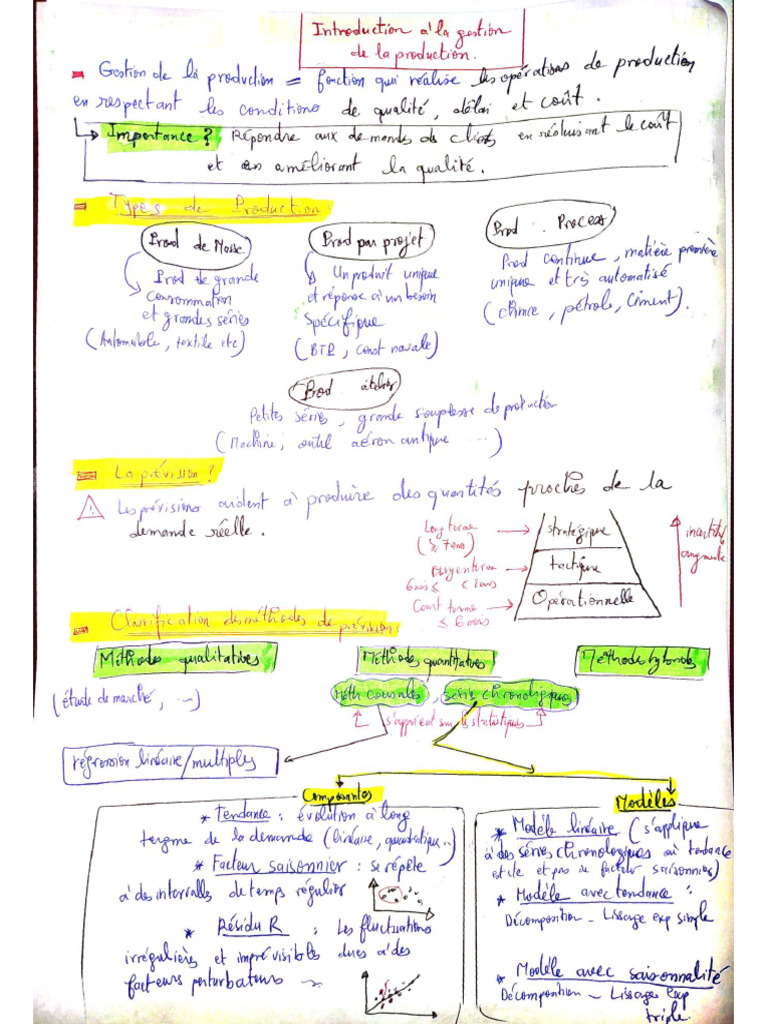 Introduction à la gestion
de la production.
Gestion de la production = fonction qui réalise les opérations de production
en respectant les conditions de qualité, délai et coût.
Importance? Répondre aux demandes des clients en réduisant le coût
et en améliorant la qualité.
Types de Production
Prod de Masse
Prod de grande
consommation
et grandes séries
(Automobile, textile etc)
Prod par projet
Un produit unique
et réponse à un besoin
Spécifique
(BTP, const navale)
Prod Process
Prod continue, matière première
unique et très automatisé
(chimie, pétrole, ciment).
Prod atelier
Petites séries, grande souplesse de production
(Machine, outil aéronautique ...)
La prévision?
Les prévisions aident à produire des quantités proches de la
demande réelle.
Long terme
stratégique
tactique
6 mois ≤
Court terme
≤ 6 mois
Opérationnelle
incertitude
augmente
Classification des méthodes de prévision:
Méthodes qualitatives
(étude de marché, ...)
Méthodes quantitatives
Méthodes hybrides
Méth causales, série chronologiques
s'appuient sur les statistiques
régression linéaire/multiples
Composantes
* Tendance : évolution à long
tergme de la demande (linéaire, quadratique...)
* Facteur saisonnier : se répète
à des intervalles de temps régulier
* Résidu R : Les fluctuations
irrégulières et imprévisibles dues à des
facteurs perturbateurs
Modèles
* Modèle linéaire (s'applique
à des séries chronologiques où tendance
et pas de facteur saisonnier)
* Modèle avec tendance :
Décomposition - Lissage exp simple
* Modèle avec saisonnalité
Décomposition - Lissage exp
triple.